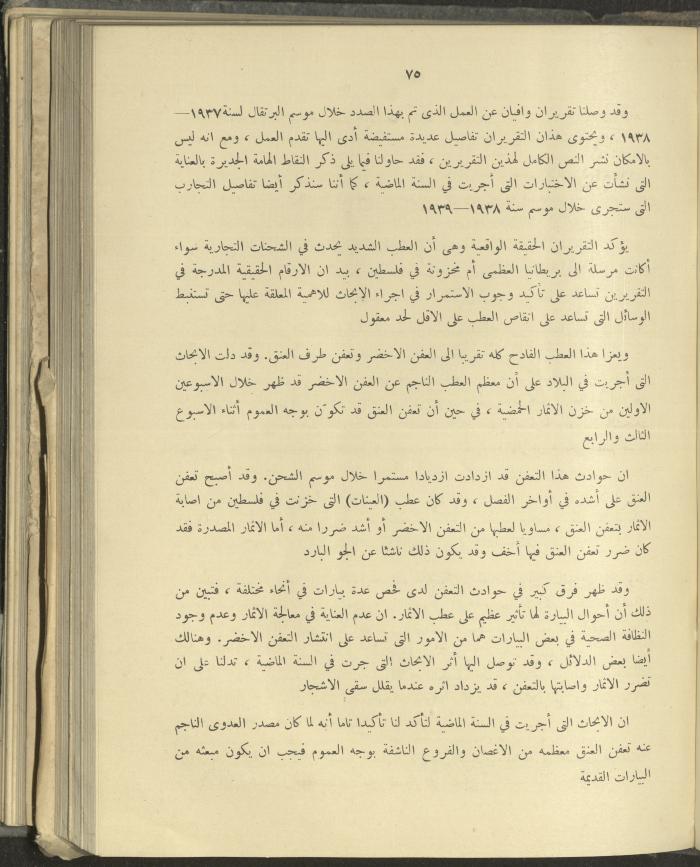 ٧٥
وقد وصلنا تقريران وافيان عن العمل الذى تم بهذا الصدد خلال موسم البرتقال لسنة ١٩٣٧—
١٩٣٨ ، ويحتوى هذان التقريران تفاصيل عديدة مستفيضة أدى اليها تقدم العمل ، ومع انه ليس
بالامكان نشر النص الكامل لهذين التقريرين ، فقد حاولنا فيما يلى ذكر النقاط الهامة الجديرة بالعناية
التى نشأت عن الاختبارات التى أجريت في السنة الماضية ، كما أننا سنذكر أيضا تفاصيل التجارب
التى ستجرى خلال موسم سنة ١٩٣٨—١٩٣٩
يؤكد التقريران الحقيقة الواقعية وهى أن العطب الشديد يحدث في الشحنات التجارية سواء
أكانت مرسلة الى بريطانيا العظمى أم مخزونة في فلسطين ، بيد ان الارقام الحقيقية المدرجة في
التقريرين تساعد على تأكيد وجوب الاستمرار في اجراء الابحاث للاهمية المعلقة عليها حتى تستنبط
الوسائل التى تساعد على انقاص العطب على الاقل لحد معقول
ويعزا هذا العطب الفادح كله تقريبا الى العفن الاخضر وتعفن طرف العنق. وقد دلت الابحاث
التى أجريت في البلاد على أن معظم العطب الناجم عن العفن الاخضر قد ظهر خلال الاسبوعين
الاولين من خزن الاثمار الحمضية ، في حين أن تعفن العنق قد تكوّن بوجه العموم أثناء الاسبوع
الثالث والرابع
ان حوادث هذا التعفن قد ازدادت ازديادا مستمرا خلال موسم الشحن. وقد أصبح تعفن
العنق على أشده في أواخر الفصل ، وقد كان عطب (العينات) التى خزنت في فلسطين من اصابة
الاثمار بتعفن العنق ، مساويا لعطبها من التعفن الاخضر أو أشد ضررا منه ، أما الاثمار المصدرة فقد
كان ضرر تعفن العنق فيها أخف وقد يكون ذلك ناشئا عن الجو البارد
وقد ظهر فرق كبير في حوادث التعفن لدى فحص عدة بيارات في أنحاء مختلفة ، فتبين من
ذلك أن أحوال البيارة لها تأثير عظيم على عطب الاثمار. ان عدم العناية في معالجة الاثمار وعدم وجود
النظافة الصحية في بعض البيارات هما من الامور التى تساعد على انتشار التعفن الاخضر. وهنالك
أيضا بعض الدلائل ، وقد توصل اليها أثر الابحاث التى جرت في السنة الماضية ، تدلنا على ان
تضرر الاثمار واصابتها بالتعفن ، قد يزداد اثره عندما يقلل سقى الاشجار
ان الابحاث التى أجريت في السنة الماضية لتأكد لنا تأكيدا تاما أنه لما كان مصدر العدوى الناجم
عنه تعفن العنق معظمه من الاغصان والفروع الناشفة بوجه العموم فيجب ان يكون مبعثه من
البيارات القديمة